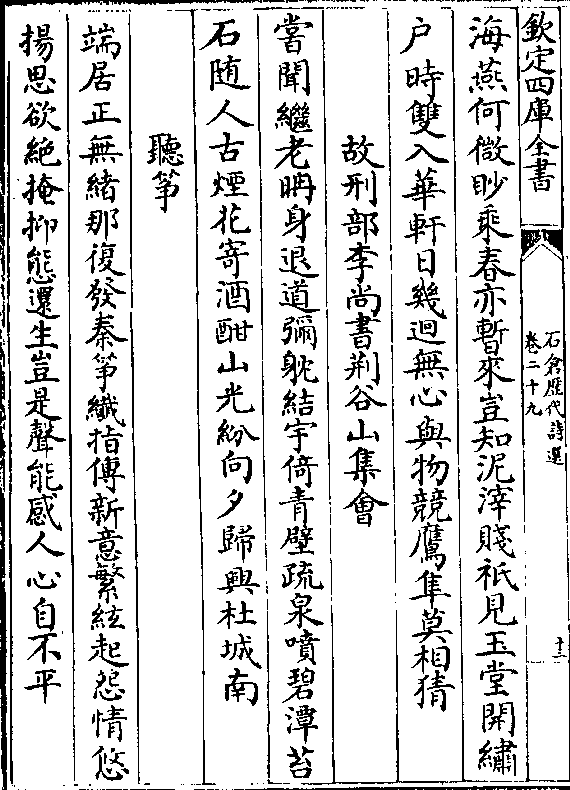 欽定四庫全書
石倉歴代詩選
卷二十九
十二
海燕何微眇乘春亦暫來豈知泥滓賤祇見玉堂開繡
户時雙入華軒日幾迴無心與物競鷹隼莫相猜
故刑部李尚書荆谷山集會
嘗聞繼老聃身退道彌躭結宇倚青壁疏泉噴碧潭苔
石随人古煙花寄酒酣山光紛向夕歸興杜城南
聽筝
端居正無緒那復發秦筝纎指傳新意繁絃起怨情悠
揚思欲絶掩抑態還生豈是聲能感人心自不平